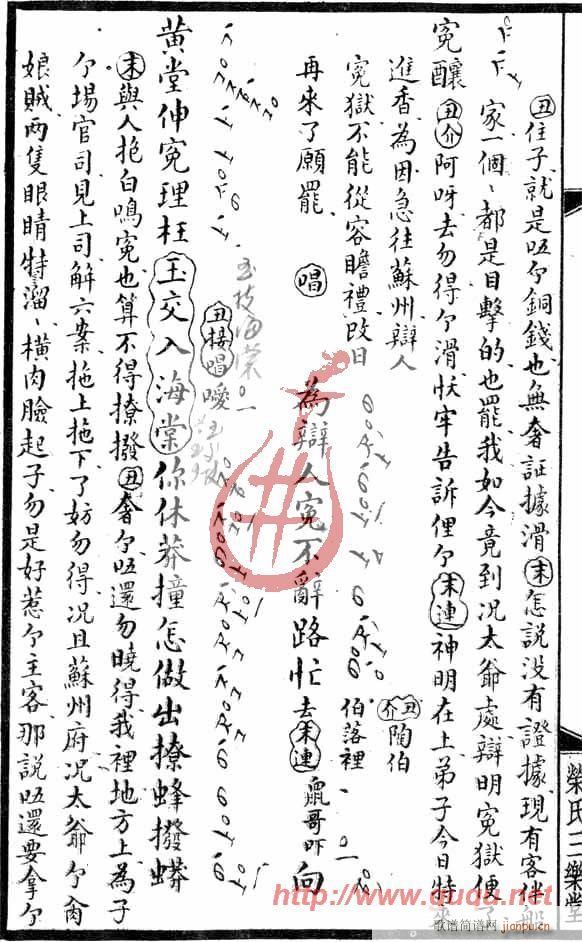 丑住子就是呸个銅錢也無奢証據滑末怎說没有證據現有客伴船
家一個、都是目擊的也罷我如今竟到况太爺處辯明寃獄便了
寃釀丑介阿呀去勿得个滑怢牢告訴俚个末連神明在上弟子今日特來
進香為因急往蘇州辯人
寃獄不能從容瞻禮改日
再來了願罷 唱 為辯人寃不辭路忙去末連鼠哥吓向
丑介陶伯
伯落裡
黄堂伸寃理枉玉交入海棠你休莽撞怎做出撩蜂撥蝎
玉枝海棠
丑接唱噯
末與人抱白鳴寃也算不得撩撥丑奢个呸還勿曉得我裡地方上為子
个場官司見上司解六案拖上拖下了妨勿得况且蘇州府况太爺个肏
娘賊两隻眼睛特溜、横肉臉起子勿是好惹个主客那說呸還要拿个
榮氏三樂堂
http://www.ququ.net
歌谱简谱网
jianpu.cn